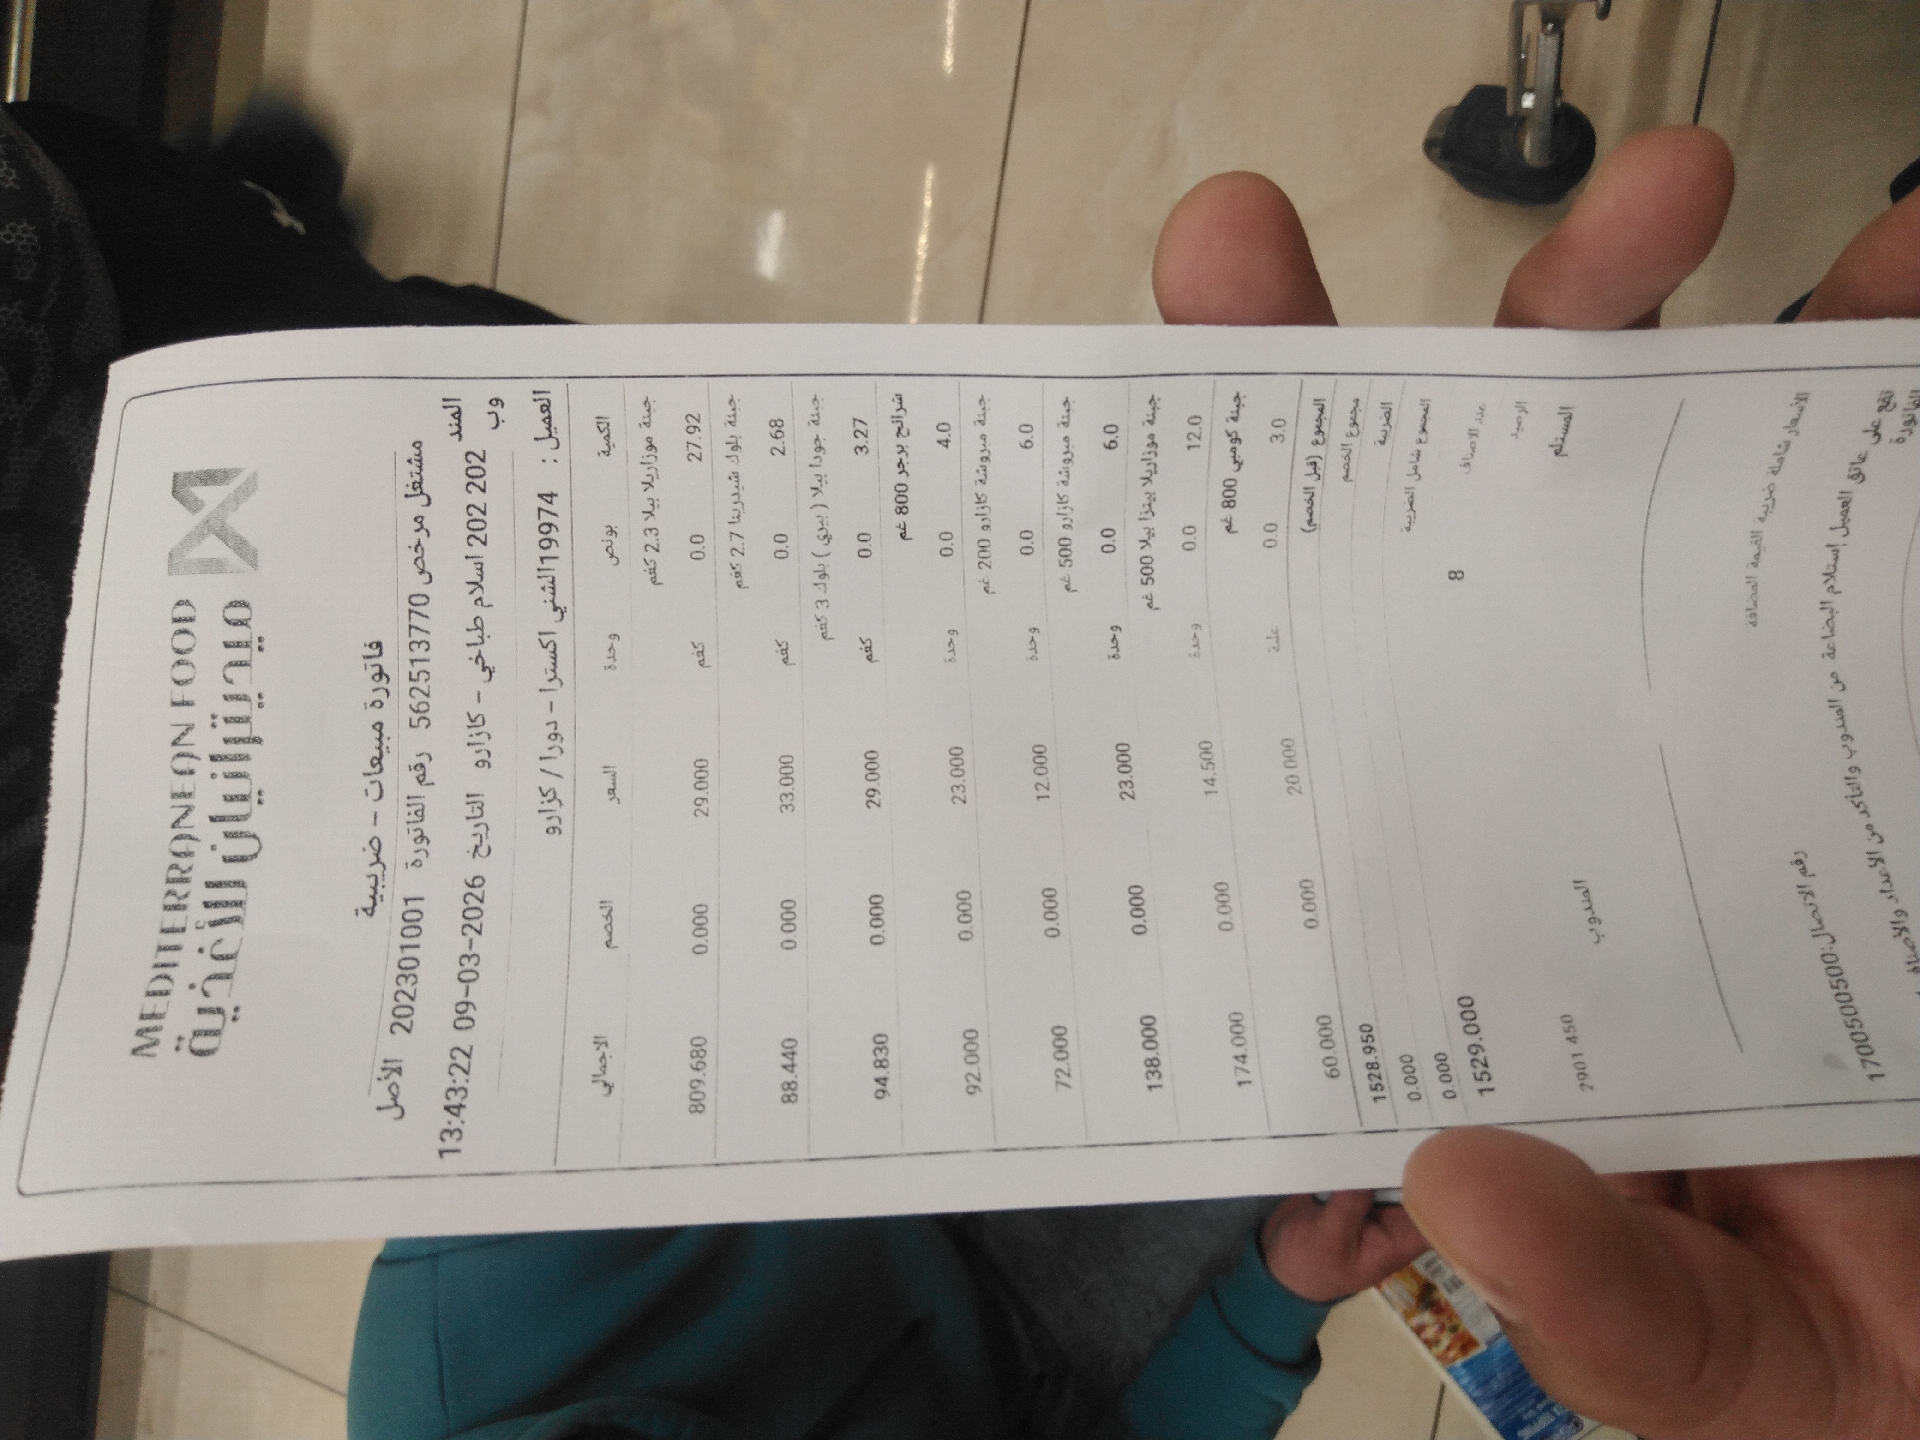 MEDITERRANEON FOOD
ميديترانيان للأغذية
فاتورة مبيعات - ضريبية
مشتغل مرخص 562513770 رقم الفاتورة 202301001 الأصل
المند وب 202 202 اسلام طباخي - كازارو التاريخ 09-03-2026 13:43:22
العميل : 19974الشني اكسترا - دورا / كزارو
الكمية بونص وحدة السعر الخصم الاجمالي
جبنة موزاريلا بيلا 2.3 كغم
27.92 0.0 كغم 29.000 0.000 809.680
جبنة بلوك شيدرينا 2.7 كغم
2.68 0.0 كغم 33.000 0.000 88.440
جبنة جودا بيلا ( بيري ) بلوك 3 كغم
3.27 0.0 كغم 29.000 0.000 94.830
شرائح برجر 800 غم
4.0 0.0 وحدة 23.000 0.000 92.000
جبنة مبروشة كازارو 200 غم
6.0 0.0 وحدة 12.000 0.000 72.000
جبنة مبروشة كازارو 500 غم
6.0 0.0 وحدة 23.000 0.000 138.000
جبنة موزاريلا بيتزا بيلا 500 غم
12.0 0.0 وحدة 14.500 0.000 174.000
جبنة كومبي 800 غم
3.0 0.0 علبة 20.000 0.000 60.000
المجموع (قبل الخصم) 1528.950
مجموع الخصم 0.000
الضريبة 0.000
المجموع شامل الضريبة 1529.000
عدد الاصناف 8
الرصيد 2901.450
المستلم المندوب
الأسعار شاملة ضريبة القيمة المضافة
رقم الاتصال:1700500500
تقع على عاتق العميل إستلام البضاعة من المندوب والتأكد من الأعداد والأصناف
الفاتورة